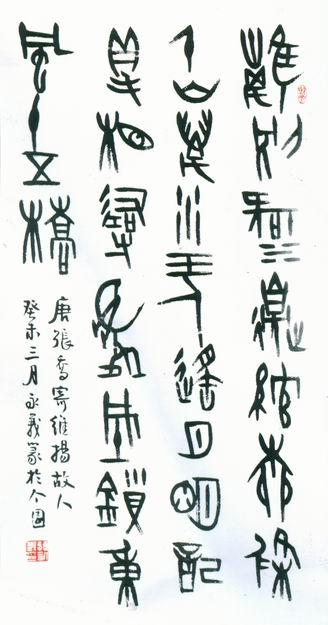 離別河邊綰柳條
千山萬水玉人遙月明記
得相尋處城鎖東
風十五橋
唐張喬寄維揚故人
癸未三月永義篆於个園